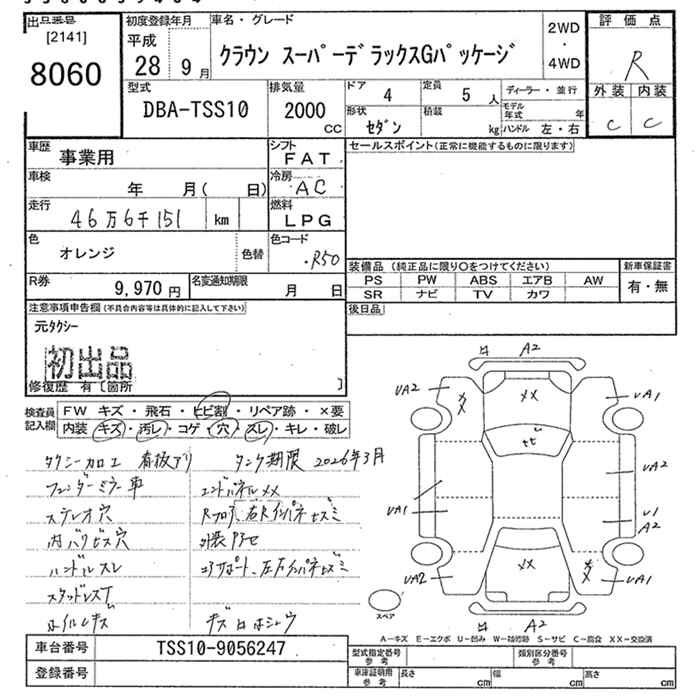 出品番号
[2141]
8060
初度登録年月
平成
28 9月
車名・グレード
クラウン スーパーデラックスGパッケージ
2WD
・
4WD
評価点
R
外装 内装
C C
型式
DBA-TSS10
排気量
2000
cc
ドア
4
定員
5 人
ディーラー・並行
モデル年式 年
形状
セダン
積載
kg
ハンドル 左・右
車歴
事業用
シフト
FAT
車検
年 月( 日)
冷房
AC
走行
46万6千151 km
燃料
LPG
色
オレンジ
色替
色コード
・R50
R券
9,970円
名変通知期限
月 日
セールスポイント(正常に機能するものに限ります)
装備品 (純正品に限り○をつけてください)
新車保証書
PS PW ABS エアB AW
SR ナビ TV カワ
有・無
後日品
注意事項申告欄(不具合内容等は具体的に記入して下さい)
元タクシー
初出品
修復歴 有〔箇所 〕
検査員記入欄
FW キズ・飛石・ヒビ割・リペア跡・×要
内装 キズ・汚レ・コゲ・穴・スレ・キレ・破レ
タクシー加工 看板アリ タンク期限 2026年3月
フェンダーミラー車 エンドパネルメメ
ステレオ穴
内バリビス穴
ハンドルスレ
スタッドレスT
ホイルキズ
A2
UA2
UA1
メメ
ヒビ
UA2
UA1
U1
A2
UA2
UA1
メメ
A2
スペア
A-キズ E-エクボ U-凹み W-補修跡 S-サビ C-腐食 XX-交換済
車台番号
TSS10-9056247
登録番号
型式指定番号
参考
類別区分番号
参考
車庫証明用
参考
長さ cm
幅 cm
高さ cm